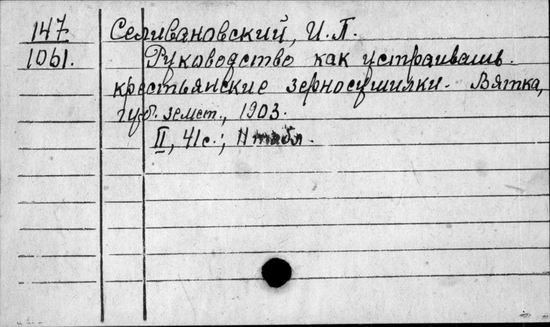 147. Селивановский, И.П.
1061. Руководство как устраивать
крестьянские зерносушилки. Вятка,
губ. земст., 1903.
II, 41 с.; 11 табл.